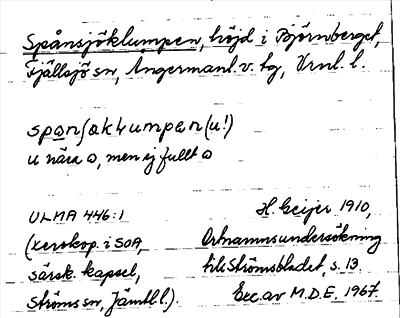 Spånsjöklumpen, höjd i Björnberget,
Fjällsjö sn, Ångermanl. v. tg, Vrnl. l.
u nära o, men ej fullt o
ULMA 446:1
(xerokop. i SOA,
särsk. kapsel,
Ströms sn, Jämtl. l.).
H. Geijer 1910,
Ortnamnsundersökning
till Strömsbladet, s. 13.
Exc. av M.D.E. 1967.